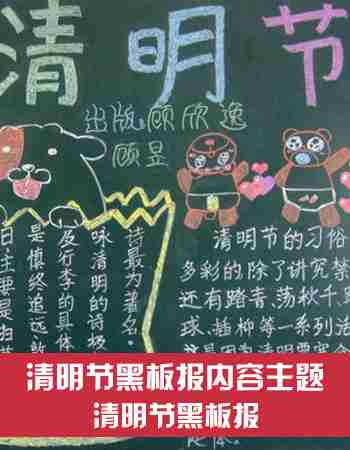 清明节
出版顾欣逸
顾昱
诗最为著名。
咏清明的诗极
及行孝的具体
是慎终追远、敦
日,主要是
清明节的习俗
多彩的,除了讲究禁
还有踏青、荡秋千、
球、插柳等一系列活
这是因为清明要寒食
清明节黑板报内容主题
清明节黑板报